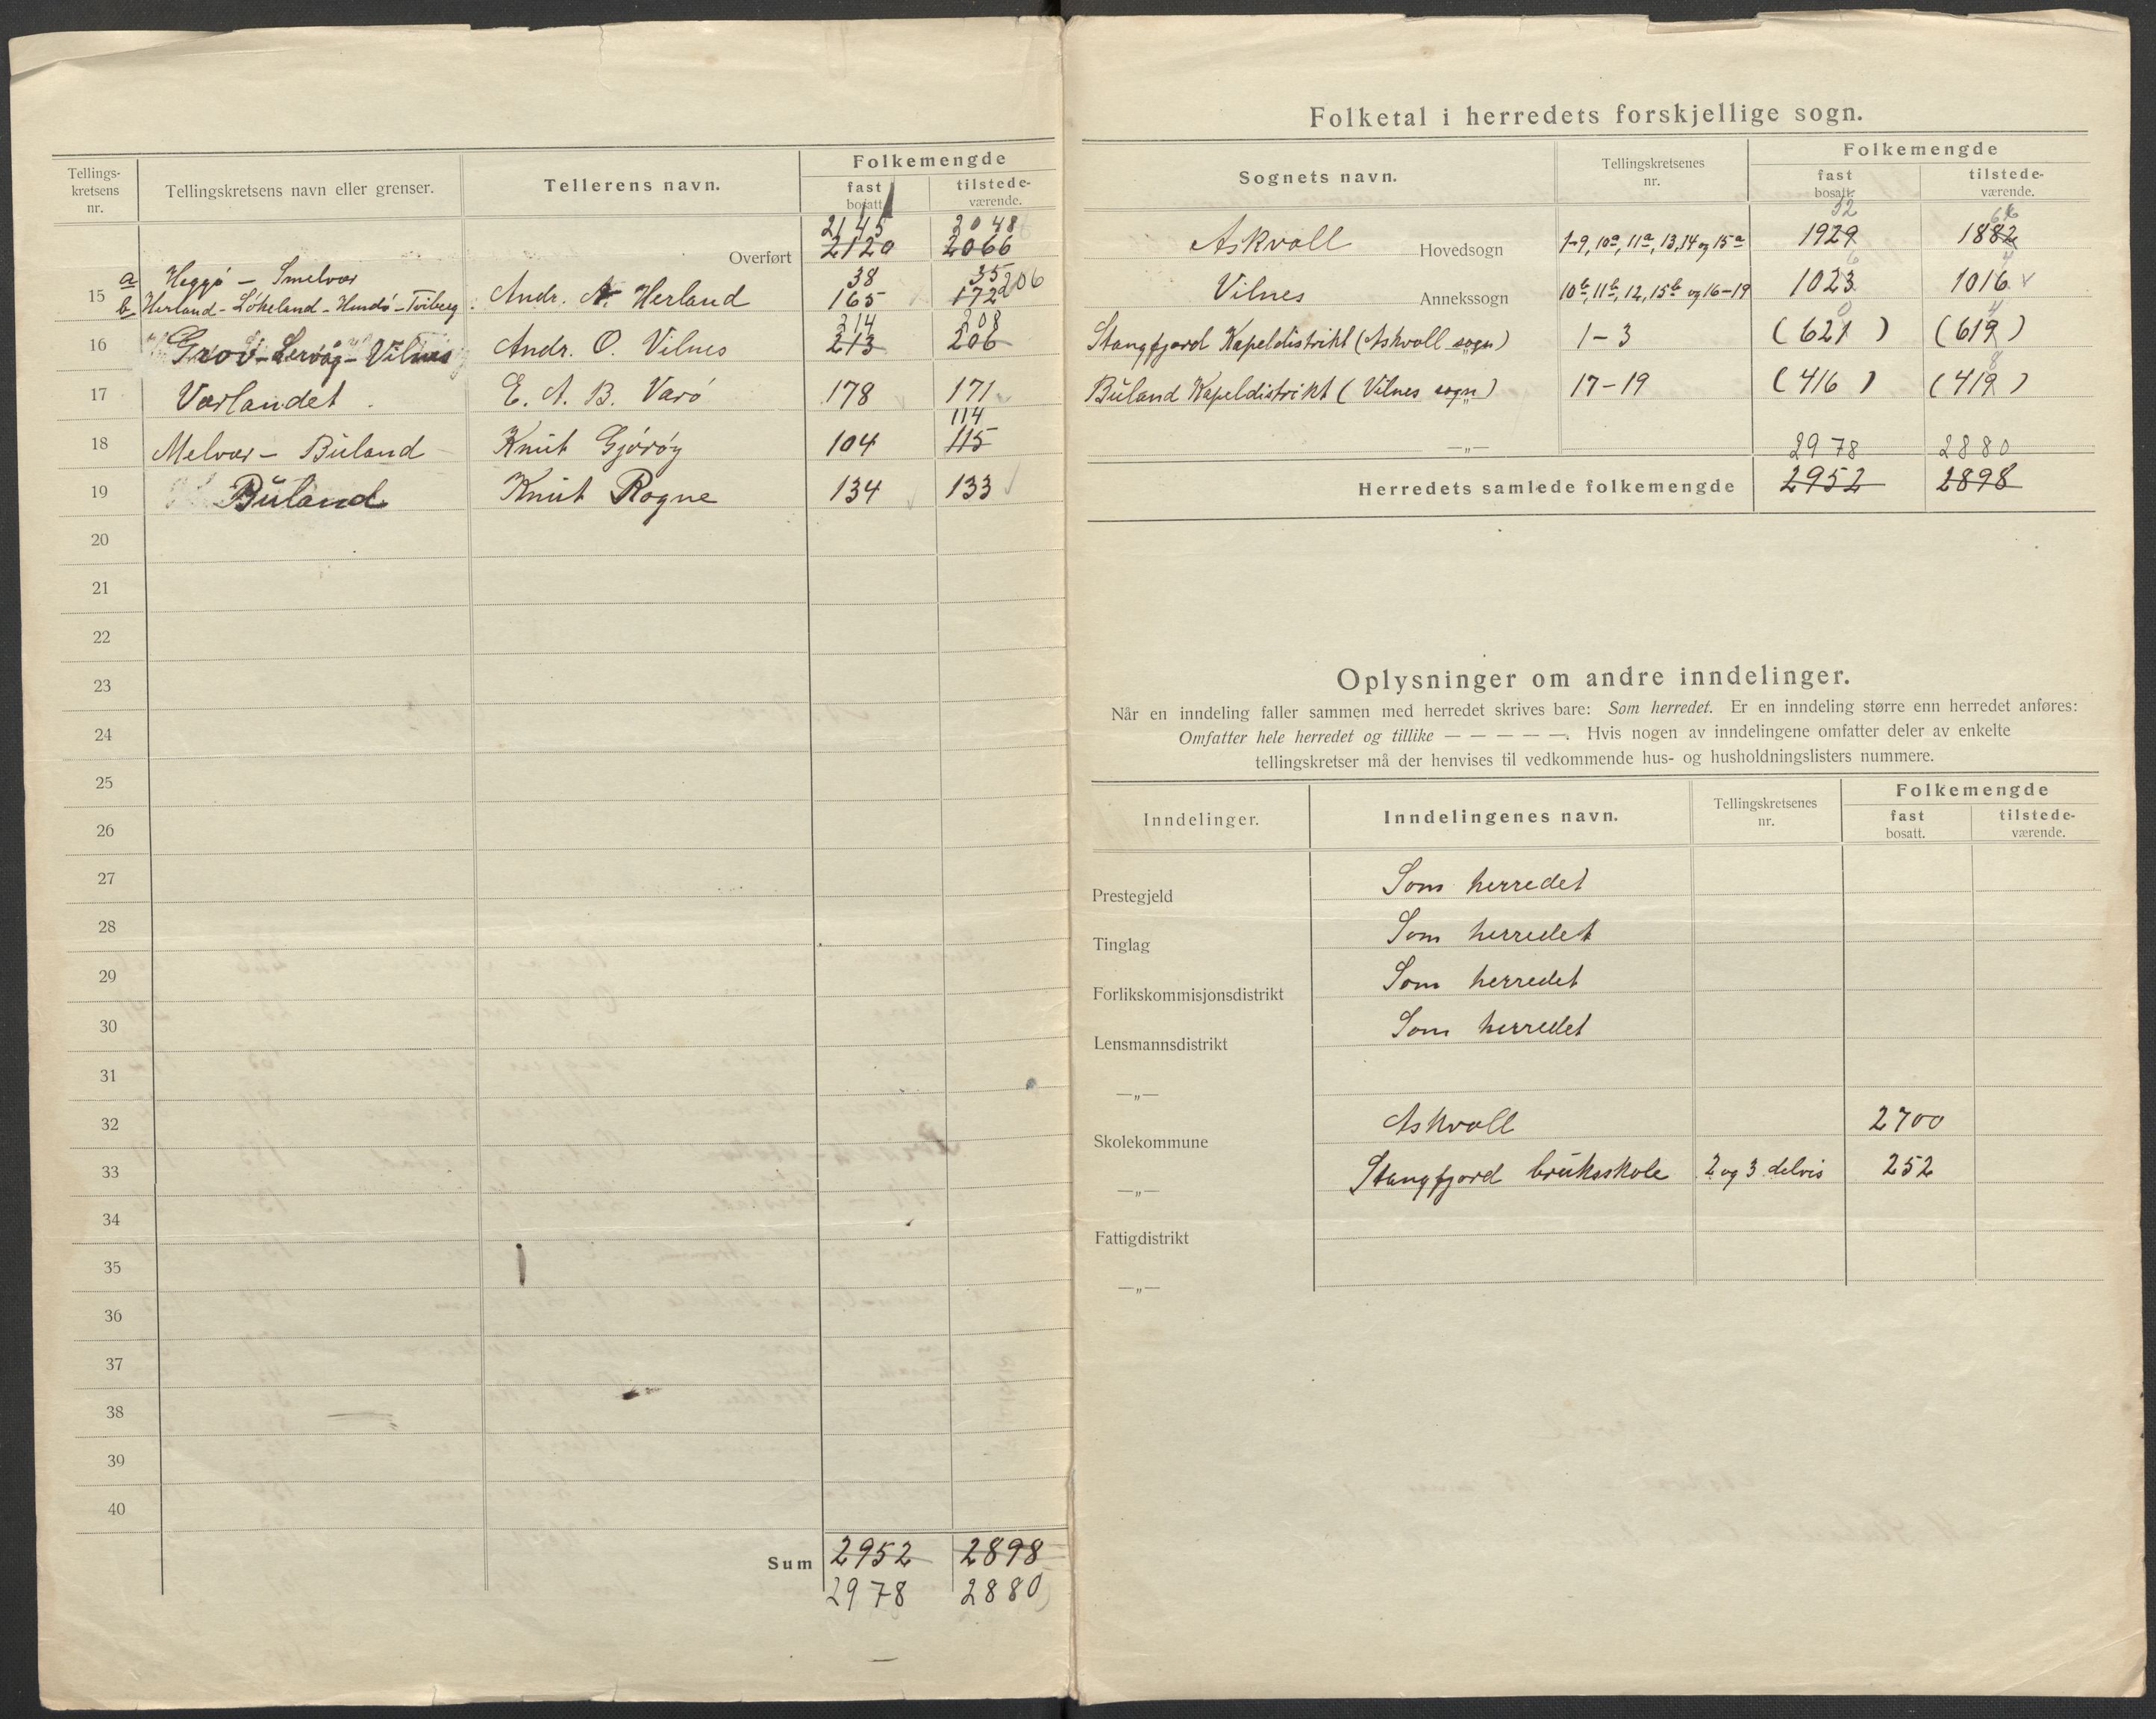 Tellings-
kretsens
nr.
Tellingskretsens navn eller grenser.
Tellerens navn.
Folkemengde
fast
bosatt.
tilstede-
værende.
2145 2048
Overført 2120 2066
a Heggø - Smelvær 38 35 206
15 b Herland - Løkeland - Hundø - Tviberg. Andr. A. Herland 165 172
214 208
16 Grov - Lervåg - Vilnes Andr. O. Vilnes 213 206
17 Værlandet. E. A. B. Varö 178 171
114
18 Melvær - Buland Knut Gjørøy 104 115
19 Buland Knut Rogne 134 133
20
21
22
23
24
25
26
27
28
29
30
31
32
33
34
35
36
37
38
39
40
Sum 2952 2898
2978 2880
Folketal i herredets forskjellige sogn.
Sognets navn.
Tellingskretsenes
nr.
Folkemengde
fast
bosatt.
tilstede-
værende.
32 66
Askvoll Hovedsogn 1-9, 10a, 11a, 13, 14 og 15a 1929 1882
6 4
Vilnes Annekssogn 10b, 11b, 12, 15b og 16-19 1023 1016
0 4
Stangfjord Kapeldistrikt (Askvoll sogn) 1-3 (621) (619)
8
Buland Kapeldistrikt (Vilnes sogn) 17-19 (416) (419)
—„— 2978 2880
Herredets samlede folkemengde 2952 2898
Oplysninger om andre inndelinger.
Når en inndeling faller sammen med herredet skrives bare: Som herredet. Er en inndeling større enn herredet anføres:
Omfatter hele herredet og tillike — — — — —. Hvis nogen av inndelingene omfatter deler av enkelte
tellingskretser må der henvises til vedkommende hus- og husholdningslisters nummere.
Inndelinger.
Inndelingenes navn.
Tellingskretsenes
nr.
Folkemengde
fast
bosatt.
tilstede-
værende.
Prestegjeld Som herredet
Tinglag Som herredet
Forlikskommisjonsdistrikt Som herredet
Lensmannsdistrikt Som herredet
—„—
Skolekommune Askvoll 2700
—„— Stangfjord bruksskole 2 og 3 delvis 252
Fattigdistrikt
—„—